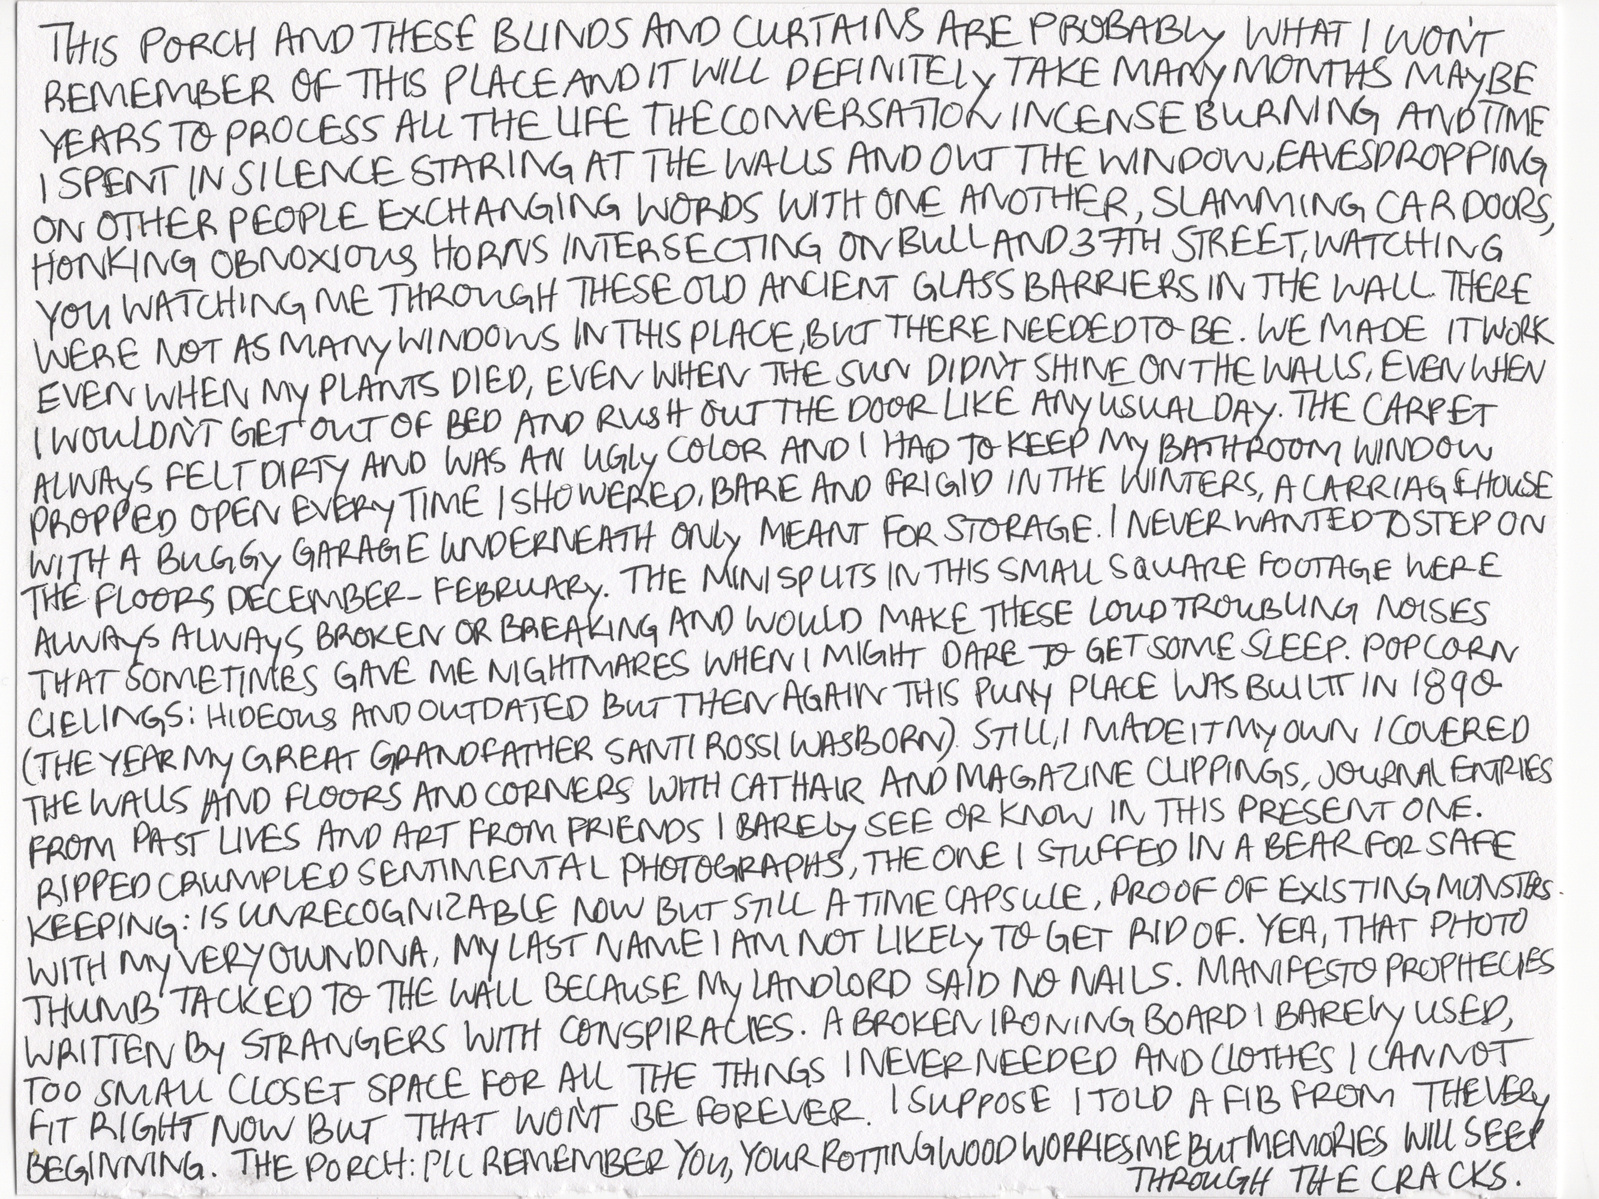 THIS PORCH AND THESE BLINDS AND CURTAINS ARE PROBABLY WHAT I WON'T
REMEMBER OF THIS PLACE AND IT WILL DEFINITELY TAKE MANY MONTHS MAYBE
YEARS TO PROCESS ALL THE LIFE THE CONVERSATION INCENSE BURNING AND TIME
I SPENT IN SILENCE STARING AT THE WALLS AND OUT THE WINDOW, EAVESDROPPING
ON OTHER PEOPLE EXCHANGING WORDS WITH ONE ANOTHER, SLAMMING CAR DOORS,
HONKING OBNOXIOUS HORNS INTERSECTING ON BULL AND 37TH STREET, WATCHING
YOU WATCHING ME THROUGH THESE OLD ANCIENT GLASS BARRIERS IN THE WALL THERE
WERE NOT AS MANY WINDOWS IN THIS PLACE, BUT THERE NEEDED TO BE. WE MADE IT WORK
EVEN WHEN MY PLANTS DIED, EVEN WHEN THE SUN DIDN'T SHINE ON THE WALLS, EVEN WHEN
I WOULDN'T GET OUT OF BED AND RUSH OUT THE DOOR LIKE ANY USUAL DAY. THE CARPET
ALWAYS FELT DIRTY AND WAS AN UGLY COLOR AND I HAD TO KEEP MY BATHROOM WINDOW
PROPPED OPEN EVERY TIME I SHOWERED, BARE AND FRIGID IN THE WINTERS, A CARRIAGE HOUSE
WITH A BUGGY GARAGE UNDERNEATH ONLY MEANT FOR STORAGE. I NEVER WANTED TO STEP ON
THE FLOORS DECEMBER - FEBRUARY. THE MINI SPLITS IN THIS SMALL SQUARE FOOTAGE WERE
ALWAYS ALWAYS BROKEN OR BREAKING AND WOULD MAKE THESE LOUD TROUBLING NOISES
THAT SOMETIMES GAVE ME NIGHTMARES WHEN I MIGHT DARE TO GET SOME SLEEP. POPCORN
CIELINGS: HIDEOUS AND OUTDATED BUT THEN AGAIN THIS PUNY PLACE WAS BUILT IN 1890
(THE YEAR MY GREAT GRANDFATHER SANTI ROSSI WAS BORN). STILL, I MADE IT MY OWN I COVERED
THE WALLS AND FLOORS AND CORNERS WITH CAT HAIR AND MAGAZINE CLIPPINGS, JOURNAL ENTRIES
FROM PAST LIVES AND ART FROM FRIENDS I BARELY SEE OR KNOW IN THIS PRESENT ONE.
RIPPED CRUMPLED SENTIMENTAL PHOTOGRAPHS, THE ONE I STUFFED IN A BEAR FOR SAFE
KEEPING: IS UNRECOGNIZABLE NOW BUT STILL A TIME CAPSULE, PROOF OF EXISTING MONSTERS.
WITH MY VERY OWN DNA, MY LAST NAME I AM NOT LIKELY TO GET RID OF. YEA, THAT PHOTO
THUMB TACKED TO THE WALL BECAUSE MY LANDLORD SAID NO NAILS. MANIFESTO PROPHECIES
WRITTEN BY STRANGERS WITH CONSPIRACIES. A BROKEN IRONING BOARD I BARELY USED,
TOO SMALL CLOSET SPACE FOR ALL THE THINGS I NEVER NEEDED AND CLOTHES I CANNOT
FIT RIGHT NOW BUT THAT WON'T BE FOREVER. I SUPPOSE I TOLD A FIB FROM THE VERY
BEGINNING. THE PORCH: I'LL REMEMBER YOU, YOUR ROTTING WOOD WORRIES ME BUT MEMORIES WILL SEEP
THROUGH THE CRACKS.